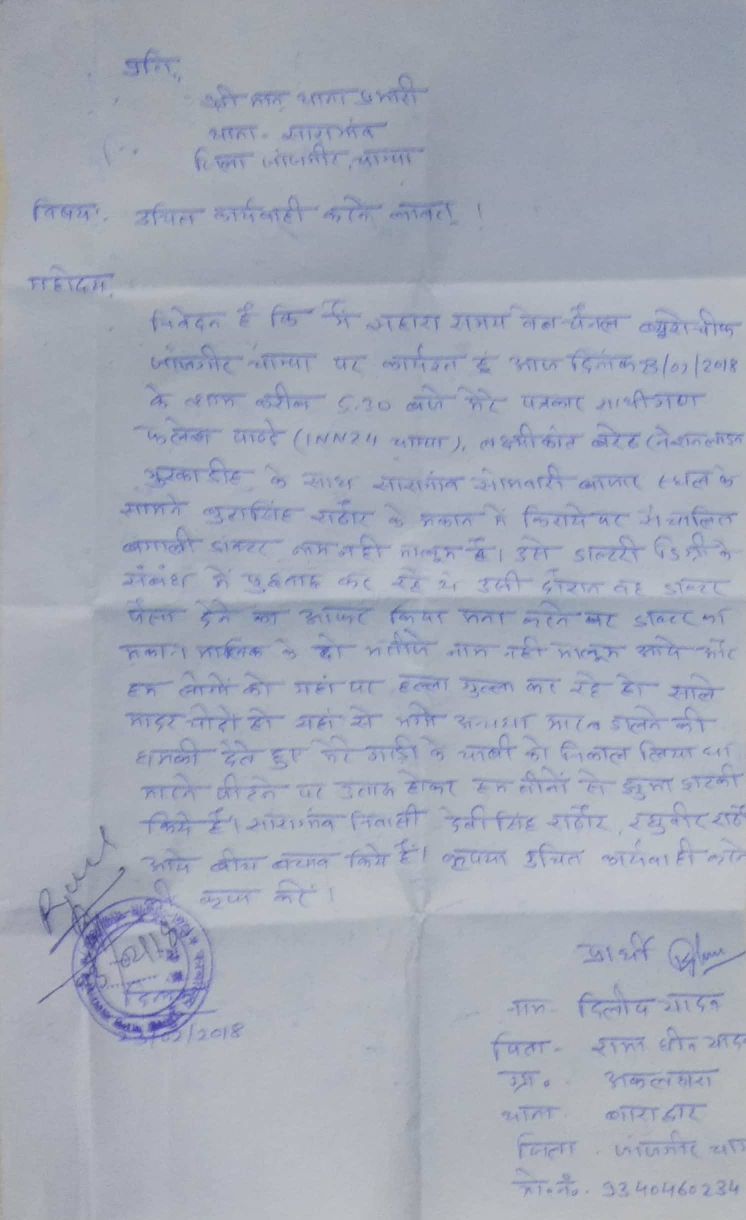 प्रति,
श्री मान थाना प्रभारी
थाना - सारागांव
जिला जांजगीर, चाम्पा
विषय:- उचित कार्यवाही करने बाबत् ।
महोदय,
निवेदन है कि मैं सहारा समय वेब चैनल ब्यूरो चीफ
जांजगीर चाम्पा पर कार्यरत हूं आज दिनांक 23/02/2018
के शाम करीब 5.30 बजे मेरे पत्रकार साथीगण
पाण्डे (INN24 चाम्पा), लक्ष्मीकांत बरेठ (नेशनलाइन
के साथ सारागांव सोमवारी बाजार स्थल के
सामने बुटासिंह राठौर के मकान में किराये पर संचालित
बंगाली डाक्टर नाम नही मालूम है। उसे डाक्टरी डिग्री के
संबंध में पुछताछ कर रहे थे उसी दौरान वह डाक्टर
पैसा देने का आफर किया मना करने पर डाक्टर का
मकान मालिक के दो भतीजे नाम नही मालूम आये और
हम लोगों को यहां पर हल्ला गुल्ला कर रहे हो साले
मादर चोदो हो यहां से भागो अन्यथा मारव डालने की
धमकी देते हुए मेरे गाड़ी के चाबी को निकाल लिया था
मारने पीटने पर उतारू होकर हम तीनों से झुमा झटकी
किये है। सारागांव निवासी देवीसिंह राठौर, रघुवीर राठौ
आये बीच बचाव किये है। कृपया उचित कार्यवाही करने
की कृपा करें।
प्रार्थी
दिनांक
23/02/2018
नाम - दिलीप यादव
पिता - यादव
ग्रा. - अकलसरा
थाना - बाराद्वार
जिला - जांजगीर चा
मो.नं. - 9340460234